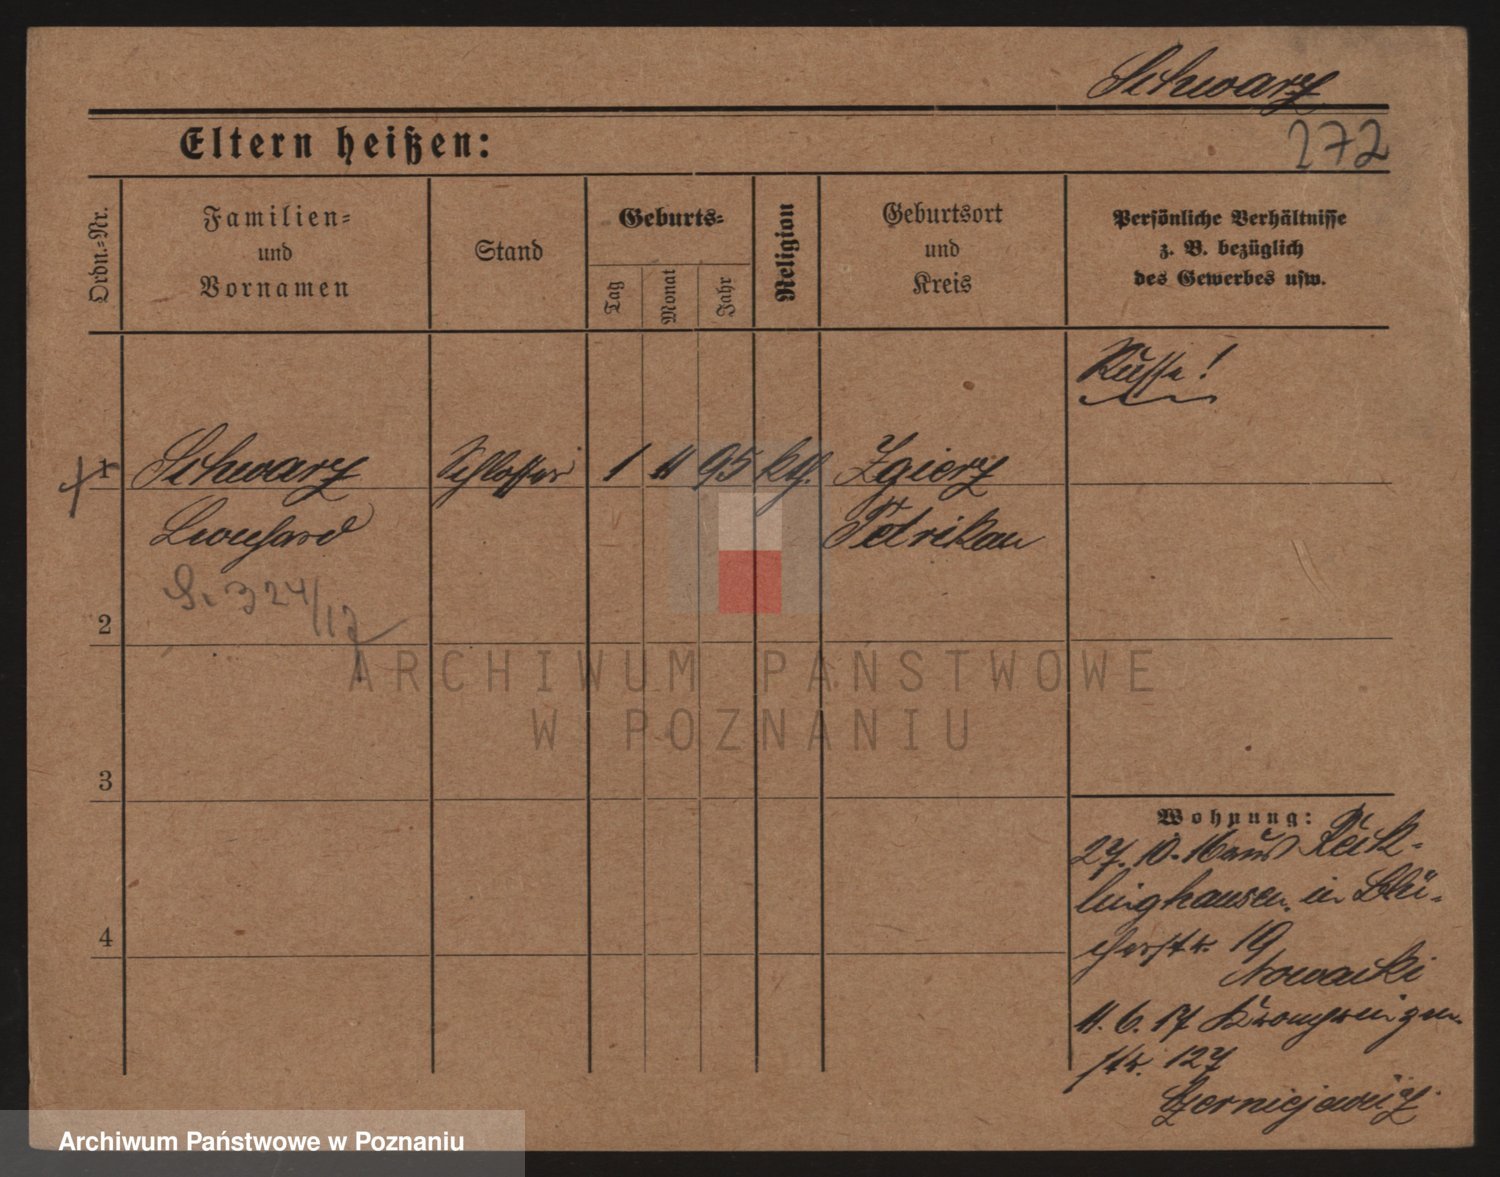 Schwarz
272
Eltern heißen:
Ordn.-Nr.
Familien-
und
Vornamen
Stand
Geburts-
Tag
Monat
Jahr
Religion
Geburtsort
und
Kreis
Persönliche Verhältnisse
z. B. bezüglich
des Gewerbes usw.
Russe!
1 Schwarz Schlosser 1 11 95 ktl. Zgierz
Leonhard Petrikau
324/17
2
ARCHIWUM PAŃSTWOWE
W POZNANIU
3
Wohnung:
27. 10. 16 aus Reck-
linghausen in Blü-
cherstr. 19
Nowacki
4
11. 6. 17 Kronprinzen-
str. 127
Czerniejewicz
Archiwum Państwowe w Poznaniu